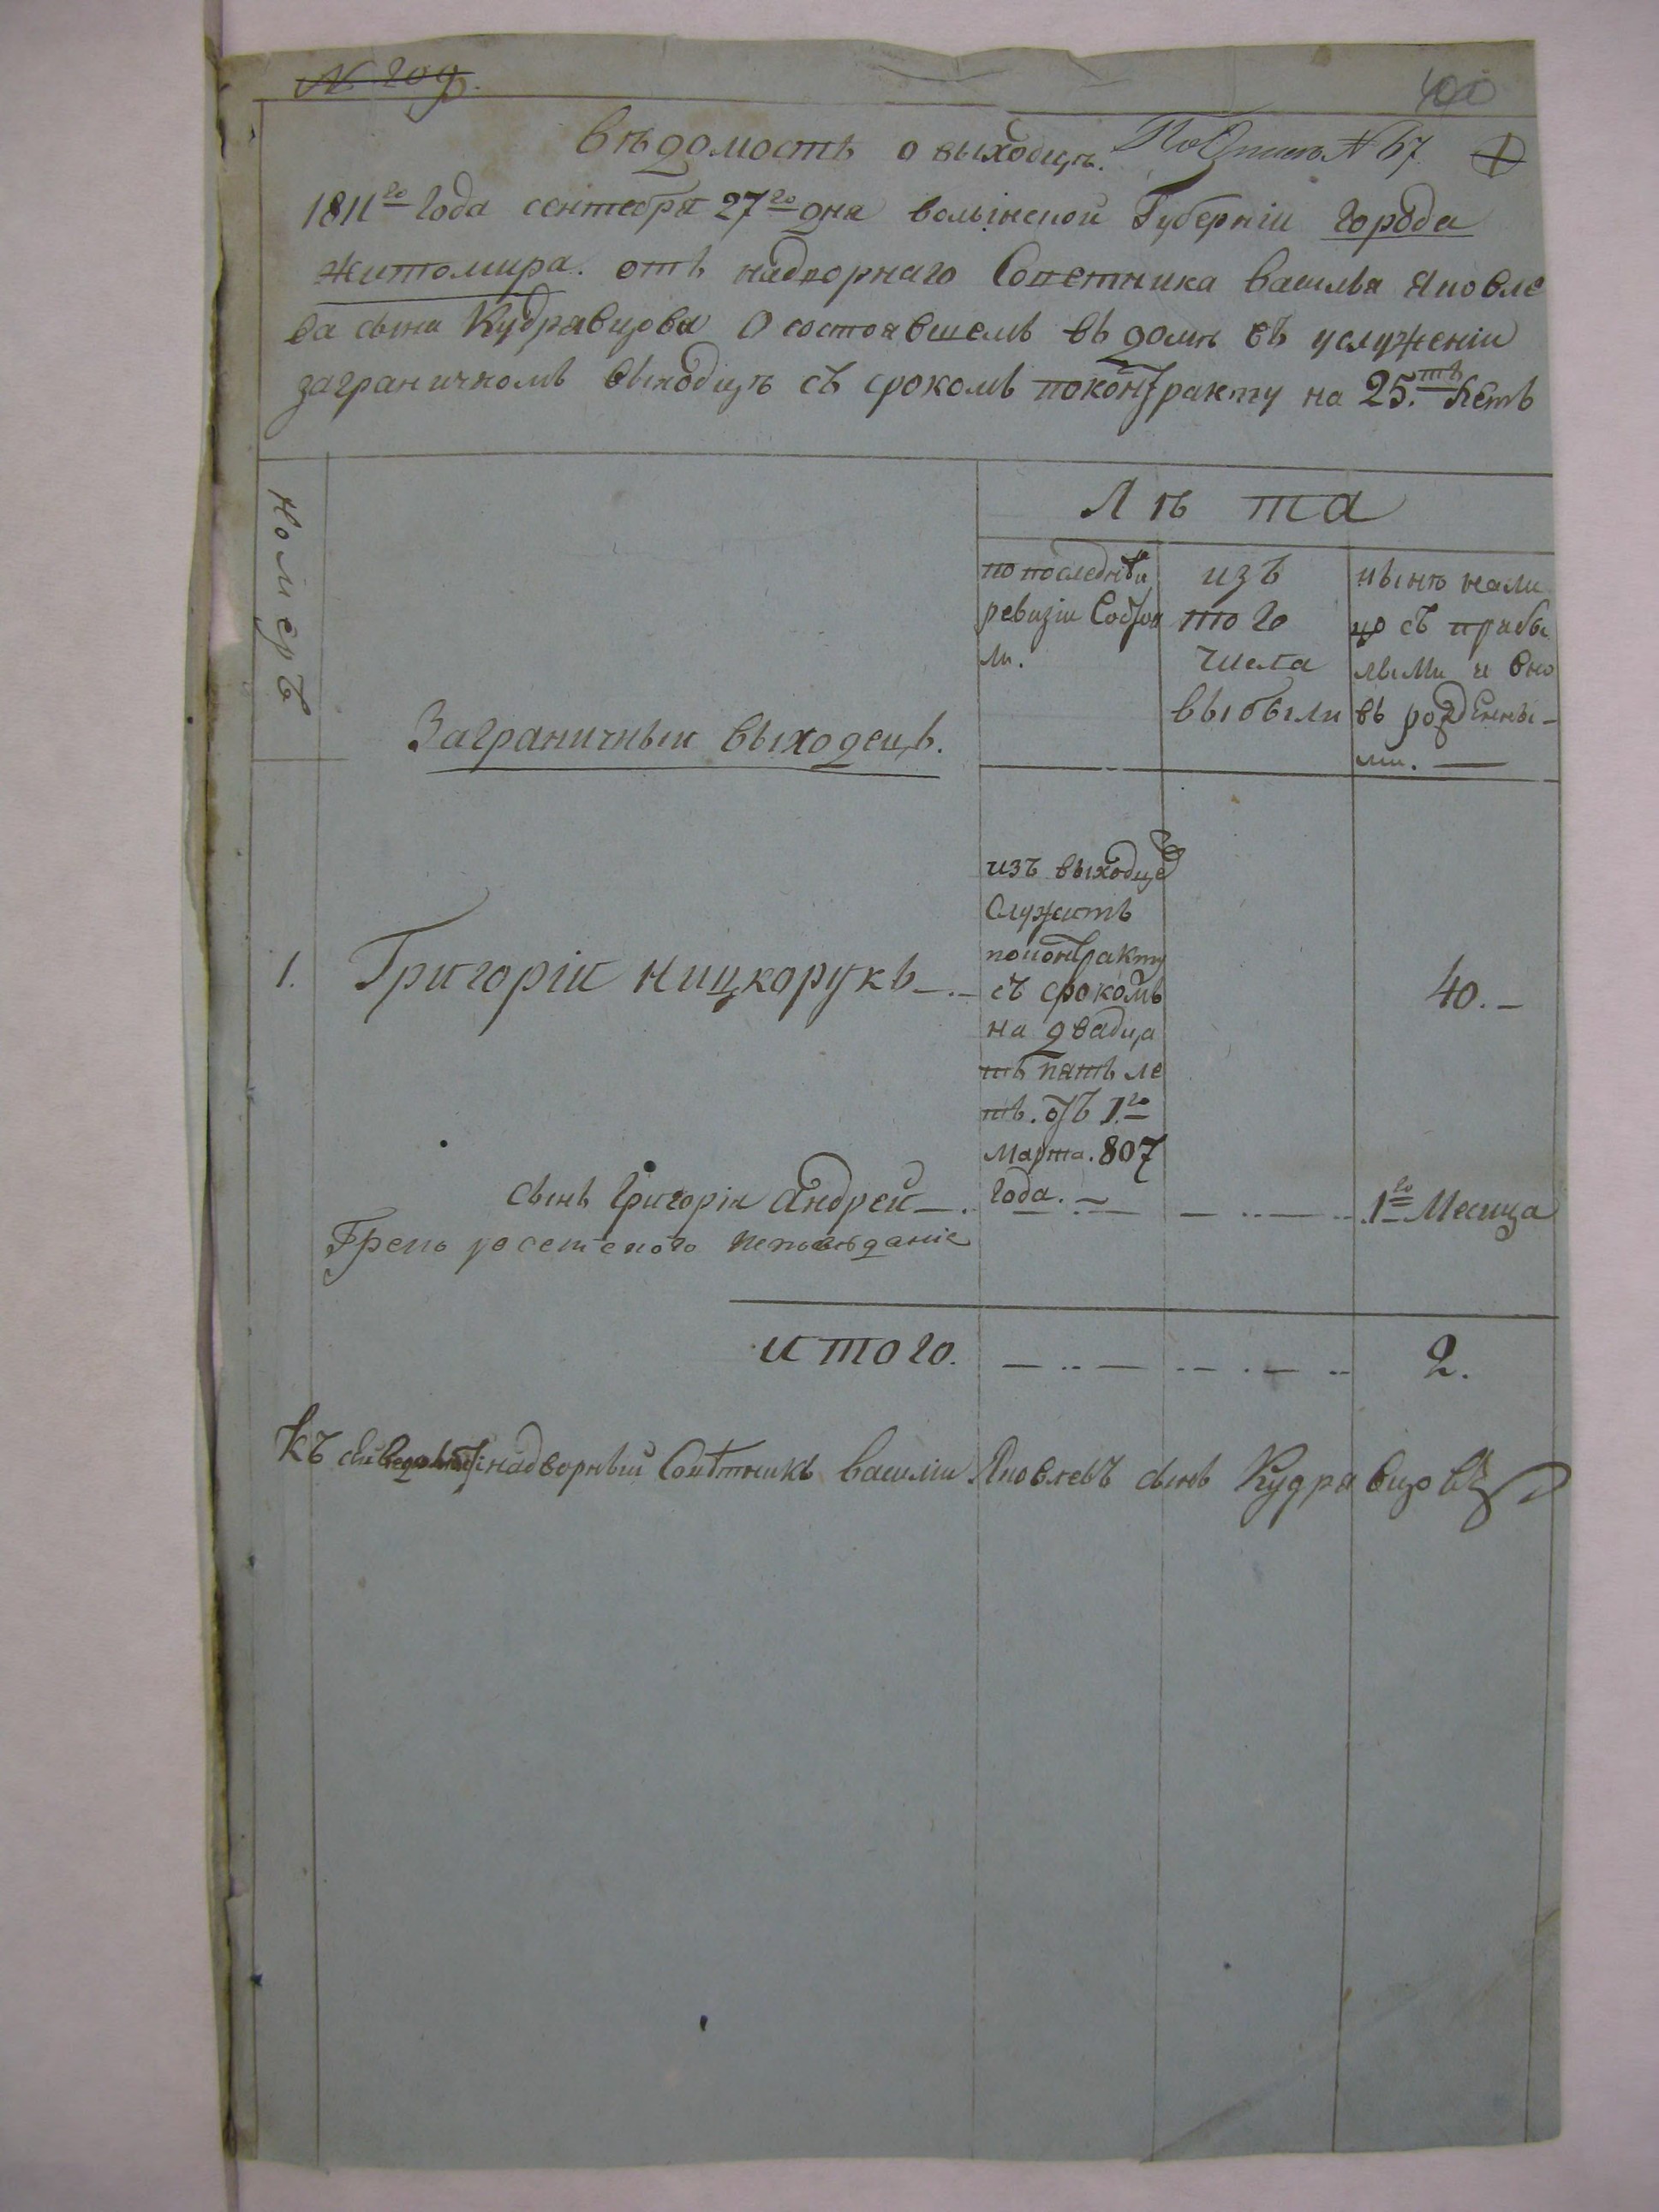 № 209.
400
Вѣдомость о выходцѣ. По описи № 67
1811го Года сентебря 27го дня волынской Губерніи города
житомира. отъ надворнаго Советника василья яковле
ва сына Кудрявцова О состоявшемъ въ домѣ въ услуженіи
заграничномъ выходцѣ съ срокомъ поконтракту на 25.ть Летъ
Номеръ
Заграничный выходецъ.
Лѣта
по последней
ревизіи Состоя
ли.
изъ
того
числа
выбыли
нынѣ нали
цо съ прибы
лыми и вно
въ рожденны-
ми.
1. Григорій Ницкорукъ
изъ выходцевъ
Служитъ
поконтракту
съ срокомъ
на двадца
ть пять ле
тъ. отъ 1.го
марта. 807
года.
40.
сынъ Григорія Андрей
1го Месяца
Греко
итого. 2.
Къ сей надворный Советникъ василій Яковлевъ сынъ Кудрявцовъ